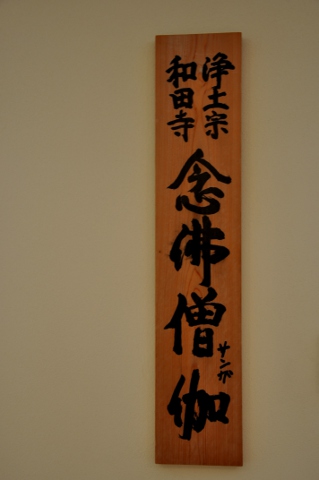 浄土宗
和田寺
念佛僧伽
サンガ